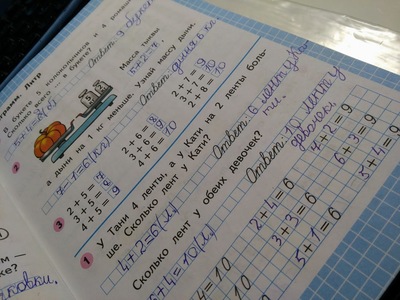 Литр
5 колокольчиков и 4
в букете?
Ответ: 9
Масса тыквы
5+2=7
а дыни на 1 кг меньше. Узнай массу дыни.
7-1=6(кг)
Ответ: дыня 6 кг
3
2 + 5 = 7
3 + 5 = 8
4 + 5 = 9
2 + 6 = 8
3 + 6 = 9
4 + 6 = 10
2 + 7 = 9
3 + 7 = 10
2 + 8 = 10
1
У Тани 4 ленты, а у Кати на 2 ленты боль-
ше. Сколько лент у Кати?
4+2=6(л)
Ответ: 6 лент у Ка
ти.
Сколько лент у обеих девочек?
+4=10(л)
Ответ: 10 лент у
девочек
4=10
=10
2+4=6
3+3=6
5+1=6
7+2=9
6+3=9
5+4=9